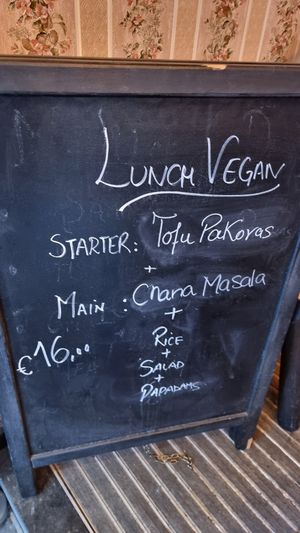 LUNCH VEGAN
STARTER: Tofu Pakoras
+
MAIN: Chana Masala
+
€16,00
RICE
+
SALAD
+
PAPADAMS